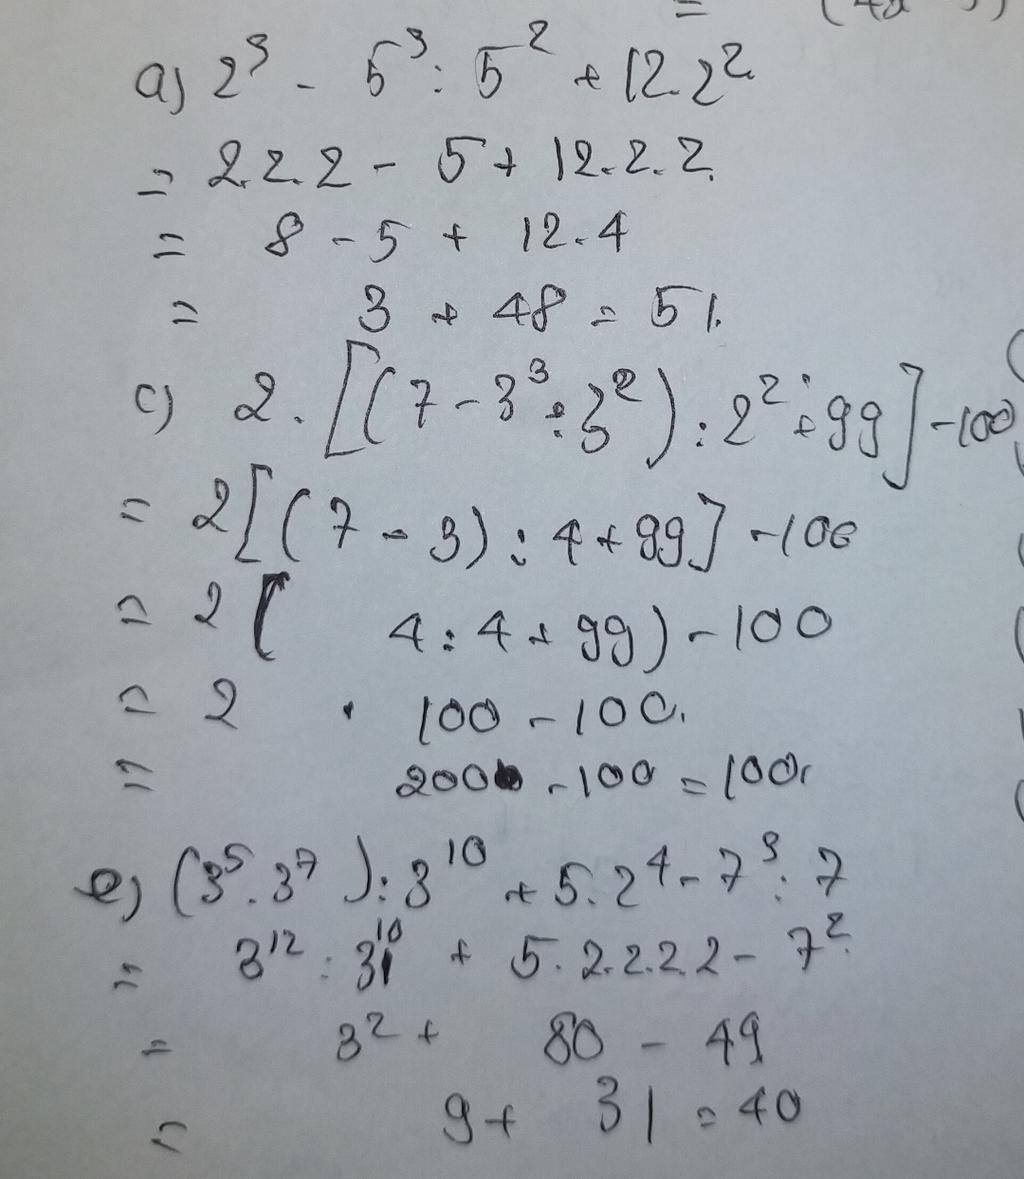 a) 2³ - 5³ : 5² + 12.2²
= 2.2.2 - 5 + 12.2.2.
= 8 - 5 + 12.4
= 3 + 48 = 51.
c) 2. [(7 - 3³ : 3²) : 2² + 99] - 100
= 2[(7 - 3) : 4 + 99] - 100
= 2 ( 4 : 4 + 99) - 100
= 2 . 100 - 100.
= 200 - 100 = 100.
e) (3⁵ . 3⁷) : 3¹⁰ + 5.2⁴ - 7³ : 7
= 3¹² : 3¹⁰ + 5.2.2.2.2 - 7².
= 3² + 80 - 49
= 9 + 31 = 40